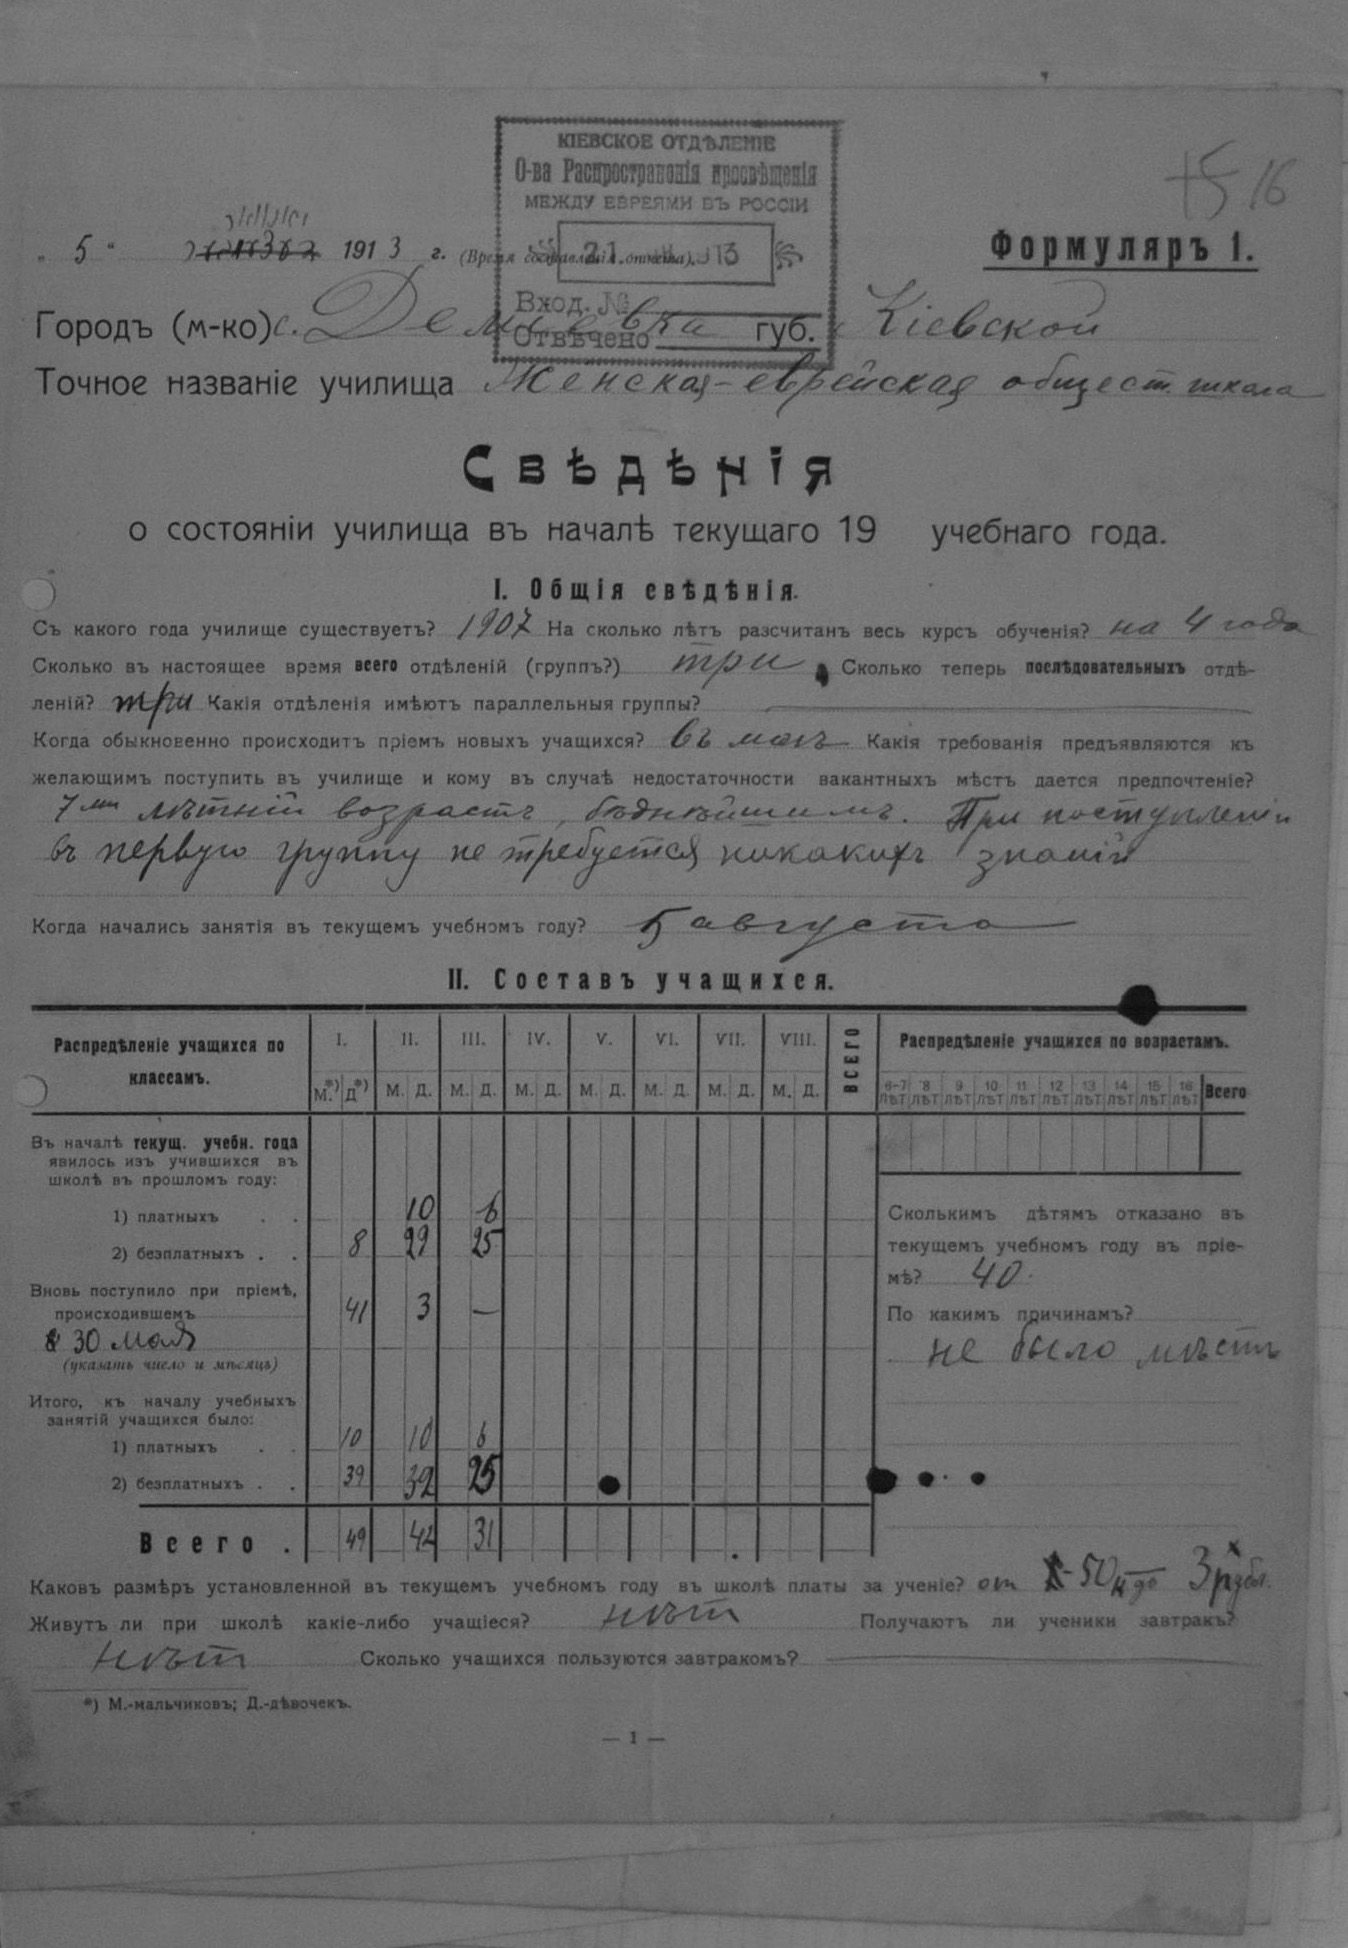 КІЕВСКОЕ ОТДѢЛЕНІЕ
О-ва Распространенія просвѣщенія
МЕЖДУ ЕВРЕЯМИ ВЪ РОССІИ
21
Вход. №
Отвѣчено
16
„ 5 “ 1913 г. (Время составленія отчета).
Формуляръ 1.
Городъ (м-ко) с. Деміевка губ. Кіевской
Точное названіе училища Женская-еврейская общест. школа
Свѣдѣнія
о состояніи училища въ началѣ текущаго 19 учебнаго года.
I. Общія свѣдѣнія.
Съ какого года училище существуетъ? 1907 На сколько лѣтъ разсчитанъ весь курсъ обученія? на 4 года
Сколько въ настоящее время всего отдѣленій (группъ?) три Сколько теперь послѣдовательныхъ отдѣ-
леній? три Какія отдѣленія имѣютъ параллельныя группы?
Когда обыкновенно происходитъ пріемъ новыхъ учащихся? въ маѣ Какія требованія предъявляются къ
желающимъ поступить въ училище и кому въ случаѣ недостаточности вакантныхъ мѣстъ дается предпочтеніе?
7ми лѣтній возрастъ, бѣднѣйшимъ. При поступленіи
въ первую группу не требуется никакихъ знаній
Когда начались занятія въ текущемъ учебномъ году? 5 августа
II. Составъ учащихся.
Распредѣленіе учащихся по классамъ. I. II. III. IV. V. VI. VII. VIII. ВСЕГО Распредѣленіе учащихся по возрастамъ.
М.*) Д*) М. Д. М. Д. М. Д. М. Д. М. Д. М. Д. М. Д. 6-7 лѣт 8 лѣт 9 лѣт 10 лѣт 11 лѣт 12 лѣт 13 лѣт 14 лѣт 15 лѣт 16 лѣт Всего
Въ началѣ текущ. учебн. года
явилось изъ учившихся въ
школѣ въ прошломъ году:
1) платныхъ . . 10 6
2) безплатныхъ . . 8 29 25
Вновь поступило при пріемѣ,
происходившемъ 41 3 —
30 мая
(указать число и мѣсяцъ)
Итого, къ началу учебныхъ
занятій учащихся было:
1) платныхъ . . 10 10 6
2) безплатныхъ . . 39 32 25
Всего . 49 42 31
Сколькимъ дѣтямъ отказано въ
текущемъ учебномъ году въ пріе-
мѣ? 40.
По какимъ причинамъ?
не было мѣстъ
Каковъ размѣръ установленной въ текущемъ учебномъ году въ школѣ платы за ученіе? от 50 к до 3 рубл.
Живутъ ли при школѣ какіе-либо учащіеся? нѣтъ Получаютъ ли ученики завтракъ?
нѣтъ Сколько учащихся пользуются завтракомъ?
*) М.-мальчиковъ; Д.-дѣвочекъ.
— 1 —